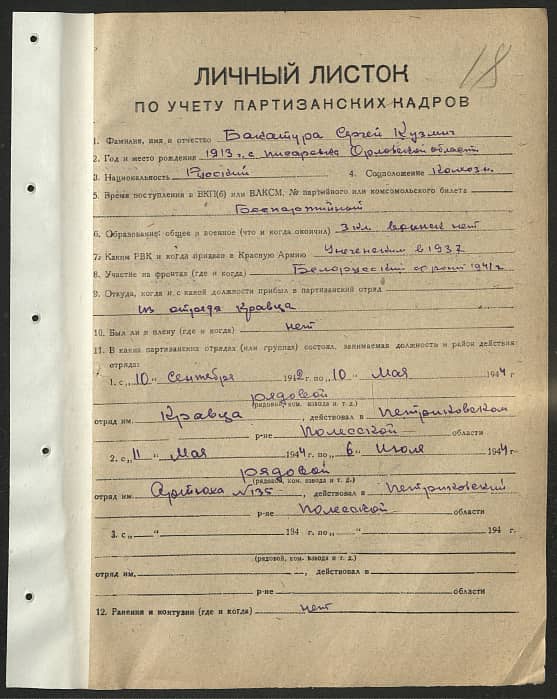 18
ЛИЧНЫЙ ЛИСТОК
ПО УЧЕТУ ПАРТИЗАНСКИХ КАДРОВ
1. Фамилия, имя и отчество Бакатура Сергей Кузмич
2. Год и место рождения 1913 г. с. Писаревка Орловской области
3. Национальность Руский 4. Соцположение Колхозн.
5. Время поступления в ВКП(б) или ВЛКСМ, № партийного или комсомольского билета
Беспартийный
6. Образование: общее и военное (что и когда окончил) 3 кл. воинск нет
7. Каким РВК и когда призван в Красную Армию Унеченским в 1937
8. Участие на фронтах (где и когда) Белорусский фронт 1941 г.
9. Откуда, когда и с какой должности прибыл в партизанский отряд
из отряда Кравца
10. Был ли в плену (где и когда) нет
11. В каких партизанских отрядах (или группах) состоял, занимаемая должность и район действия
отряда:
1. с „10“ Сентября 1942 г. по „10“ Мая 1944 г.
рядовой
(рядовой, ком. взвода и т. д.)
отряд им. Кравца, действовал в Петриковском
р-не Полесской области
2. с „11“ Мая 1944 г. по „6“ Июля 1944 г.
рядовой
(рядовой, ком. взвода и т. д.)
отряд им. №135, действовал в Петриковский
р-не Полесской области
3. с „ “ 194 г. по „ “ 194 г.
(рядовой, ком. взвода и т. д.)
отряд им. , действовал в
р-не области
12. Ранения и контузии (где и когда) нет